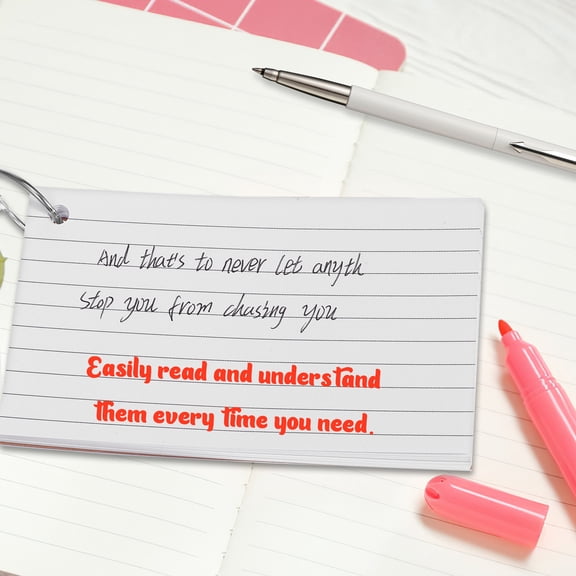 And that's to never let anyth
stop you from chasing you
Easily read and understand
them every time you need.